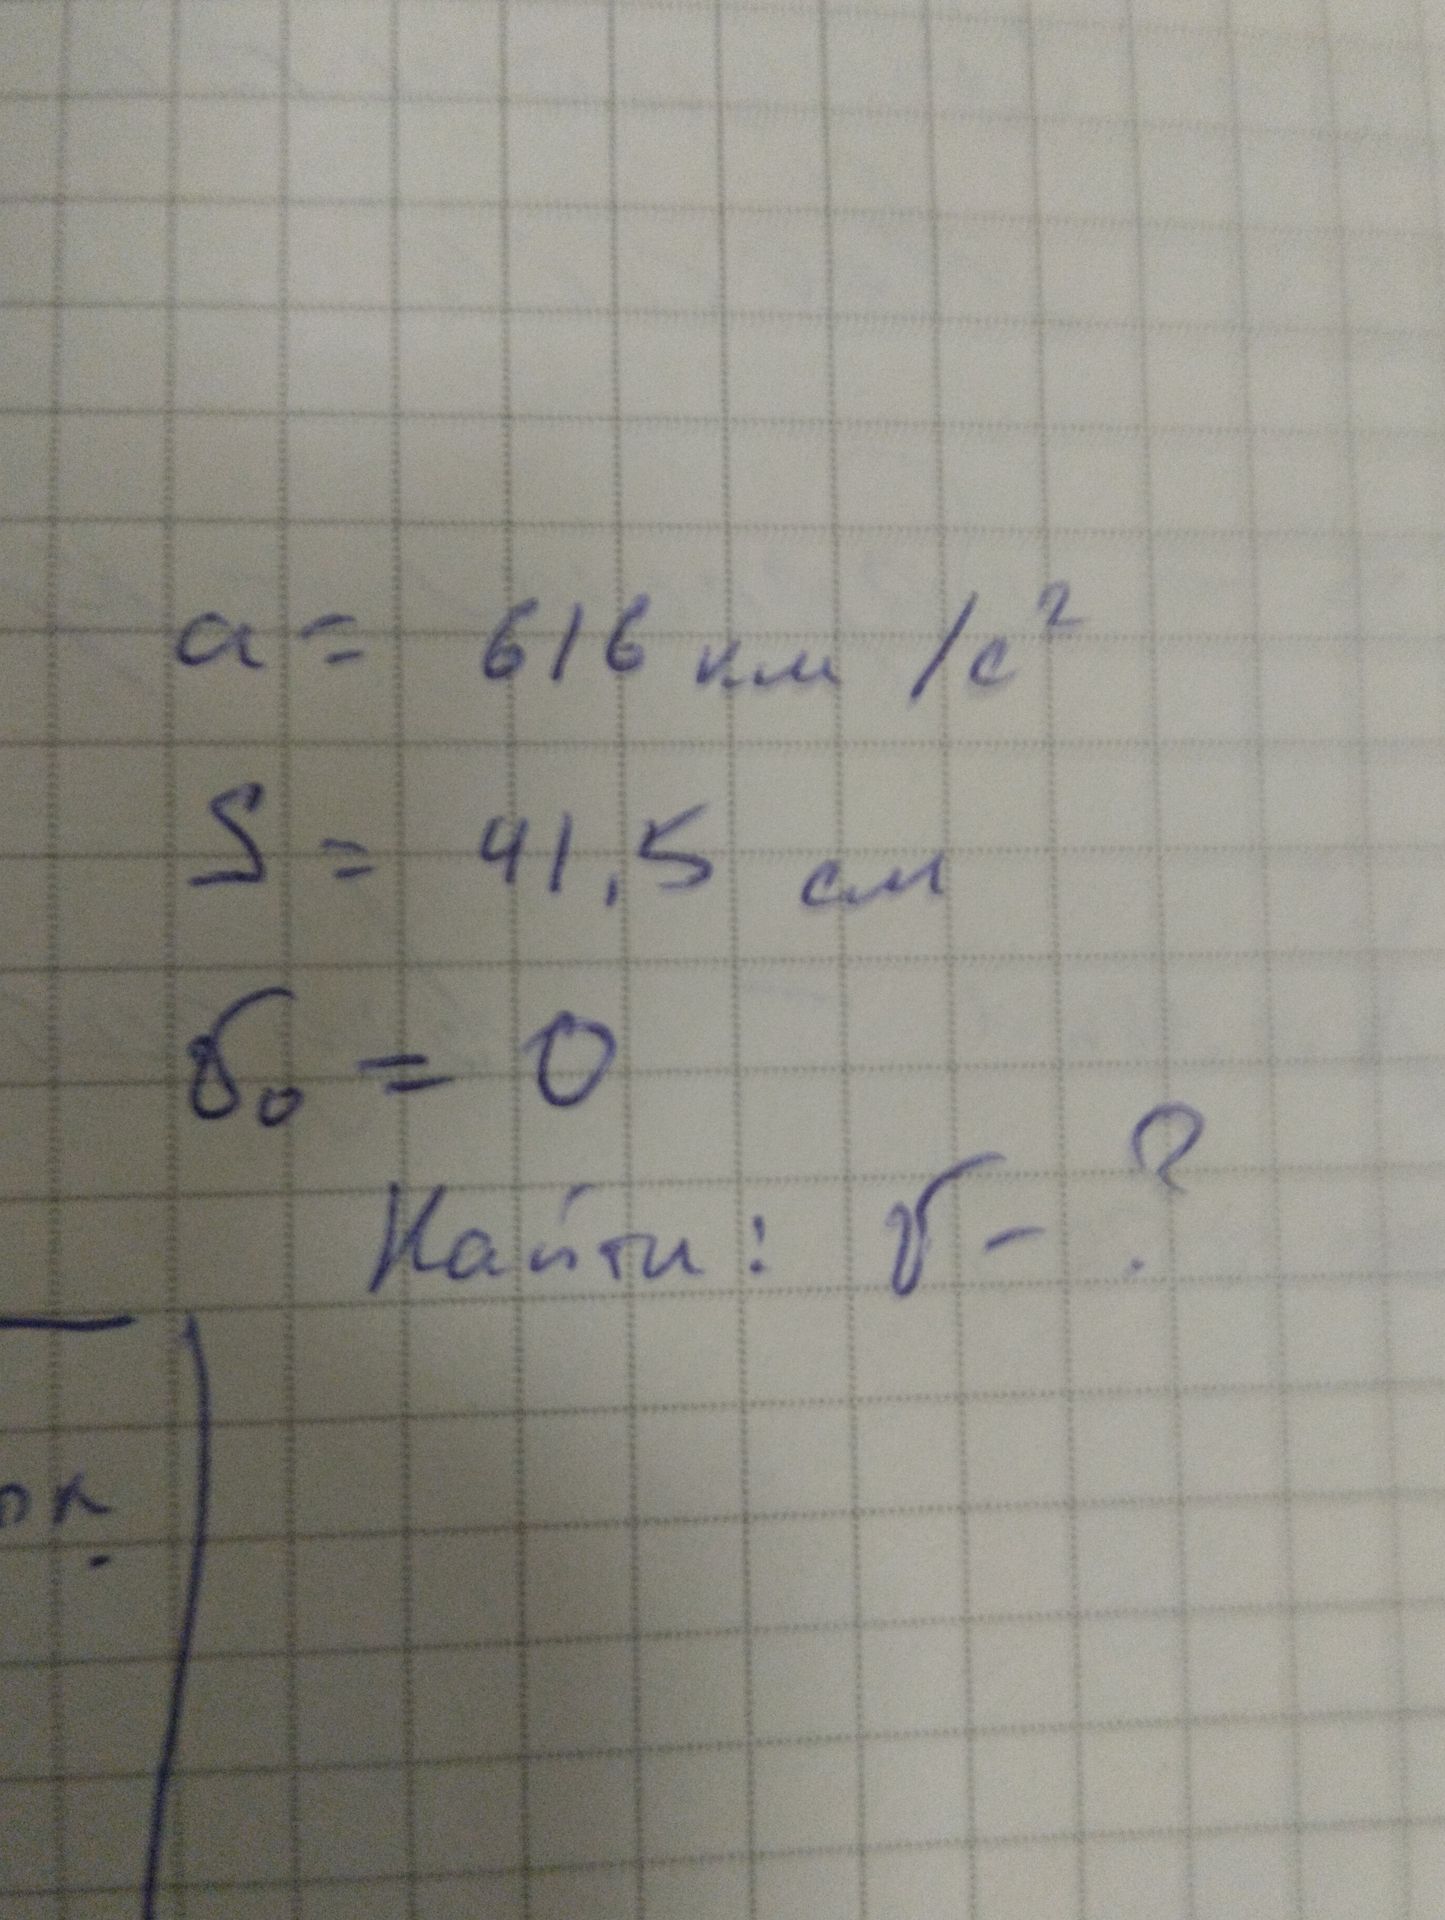 a = 616 км/с²
S = 41,5 см
υ₀ = 0
Найти: υ - ?